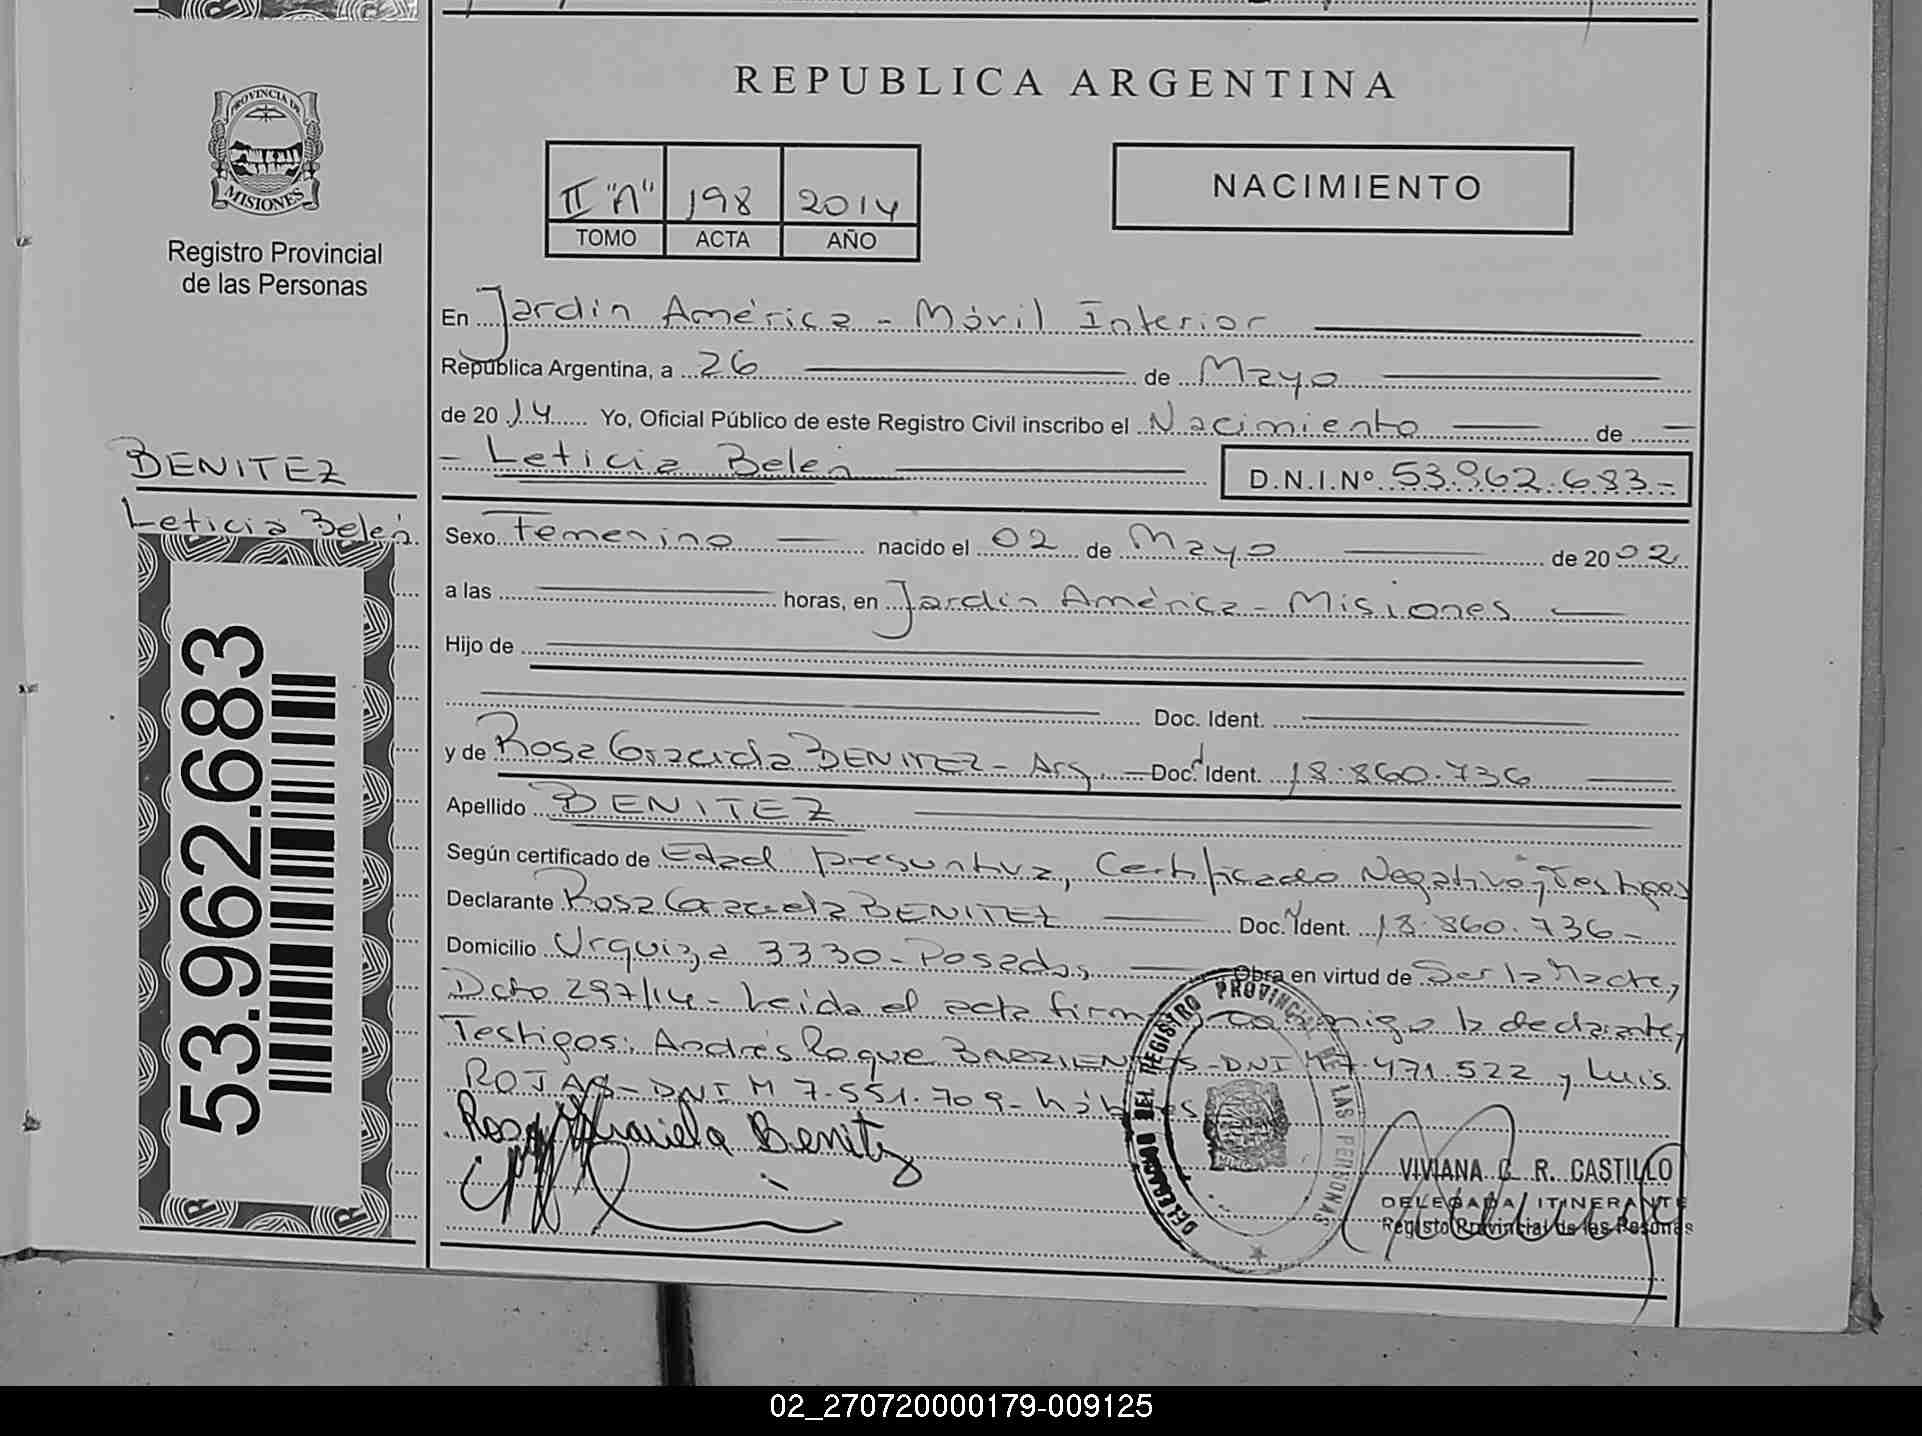 REPUBLICA ARGENTINA
PROVINCIA DE
MISIONES
Registro Provincial
de las Personas
II "A" 198 2014
TOMO ACTA AÑO
NACIMIENTO
En Jardín América - Móvil Interior
República Argentina, a 26 de Mayo
de 2014 Yo, Oficial Público de este Registro Civil inscribo el Nacimiento de
- Leticia Belén D.N.I.Nº 53.962.683-
BENITEZ
Leticia Belén.
53.962.683
Sexo Femenino nacido el 02 de Mayo de 2002
a las horas, en Jardín América - Misiones
Hijo de
Doc. Ident.
y de Rosa Graciela BENITEZ - Arg. Doc. Ident. 18.860.736
Apellido BENITEZ
Según certificado de Edad presuntiva, Certificado Negativo y Testigos
Declarante Rosa Graciela BENITEZ Doc. Ident. 18.860.736-
Domicilio Urquiza 3330 - Posadas, Obra en virtud de Ser la Madre,
Dcto 297/14 - Leida el acta firma conmigo la declarante,
Testigos: Andrés Roque BARRIENTOS - DNI 17.471.522 y Luis
ROJAS - DNI M 7.551.709 - hábiles
Rosa Graciela Benitez
DELEGACION DEL REGISTRO PROVINCIAL DE LAS PERSONAS
VIVIANA C. R. CASTILLO
DELEGADA ITINERANTE
Registo Provincial de las Pesonas
02_270720000179-009125